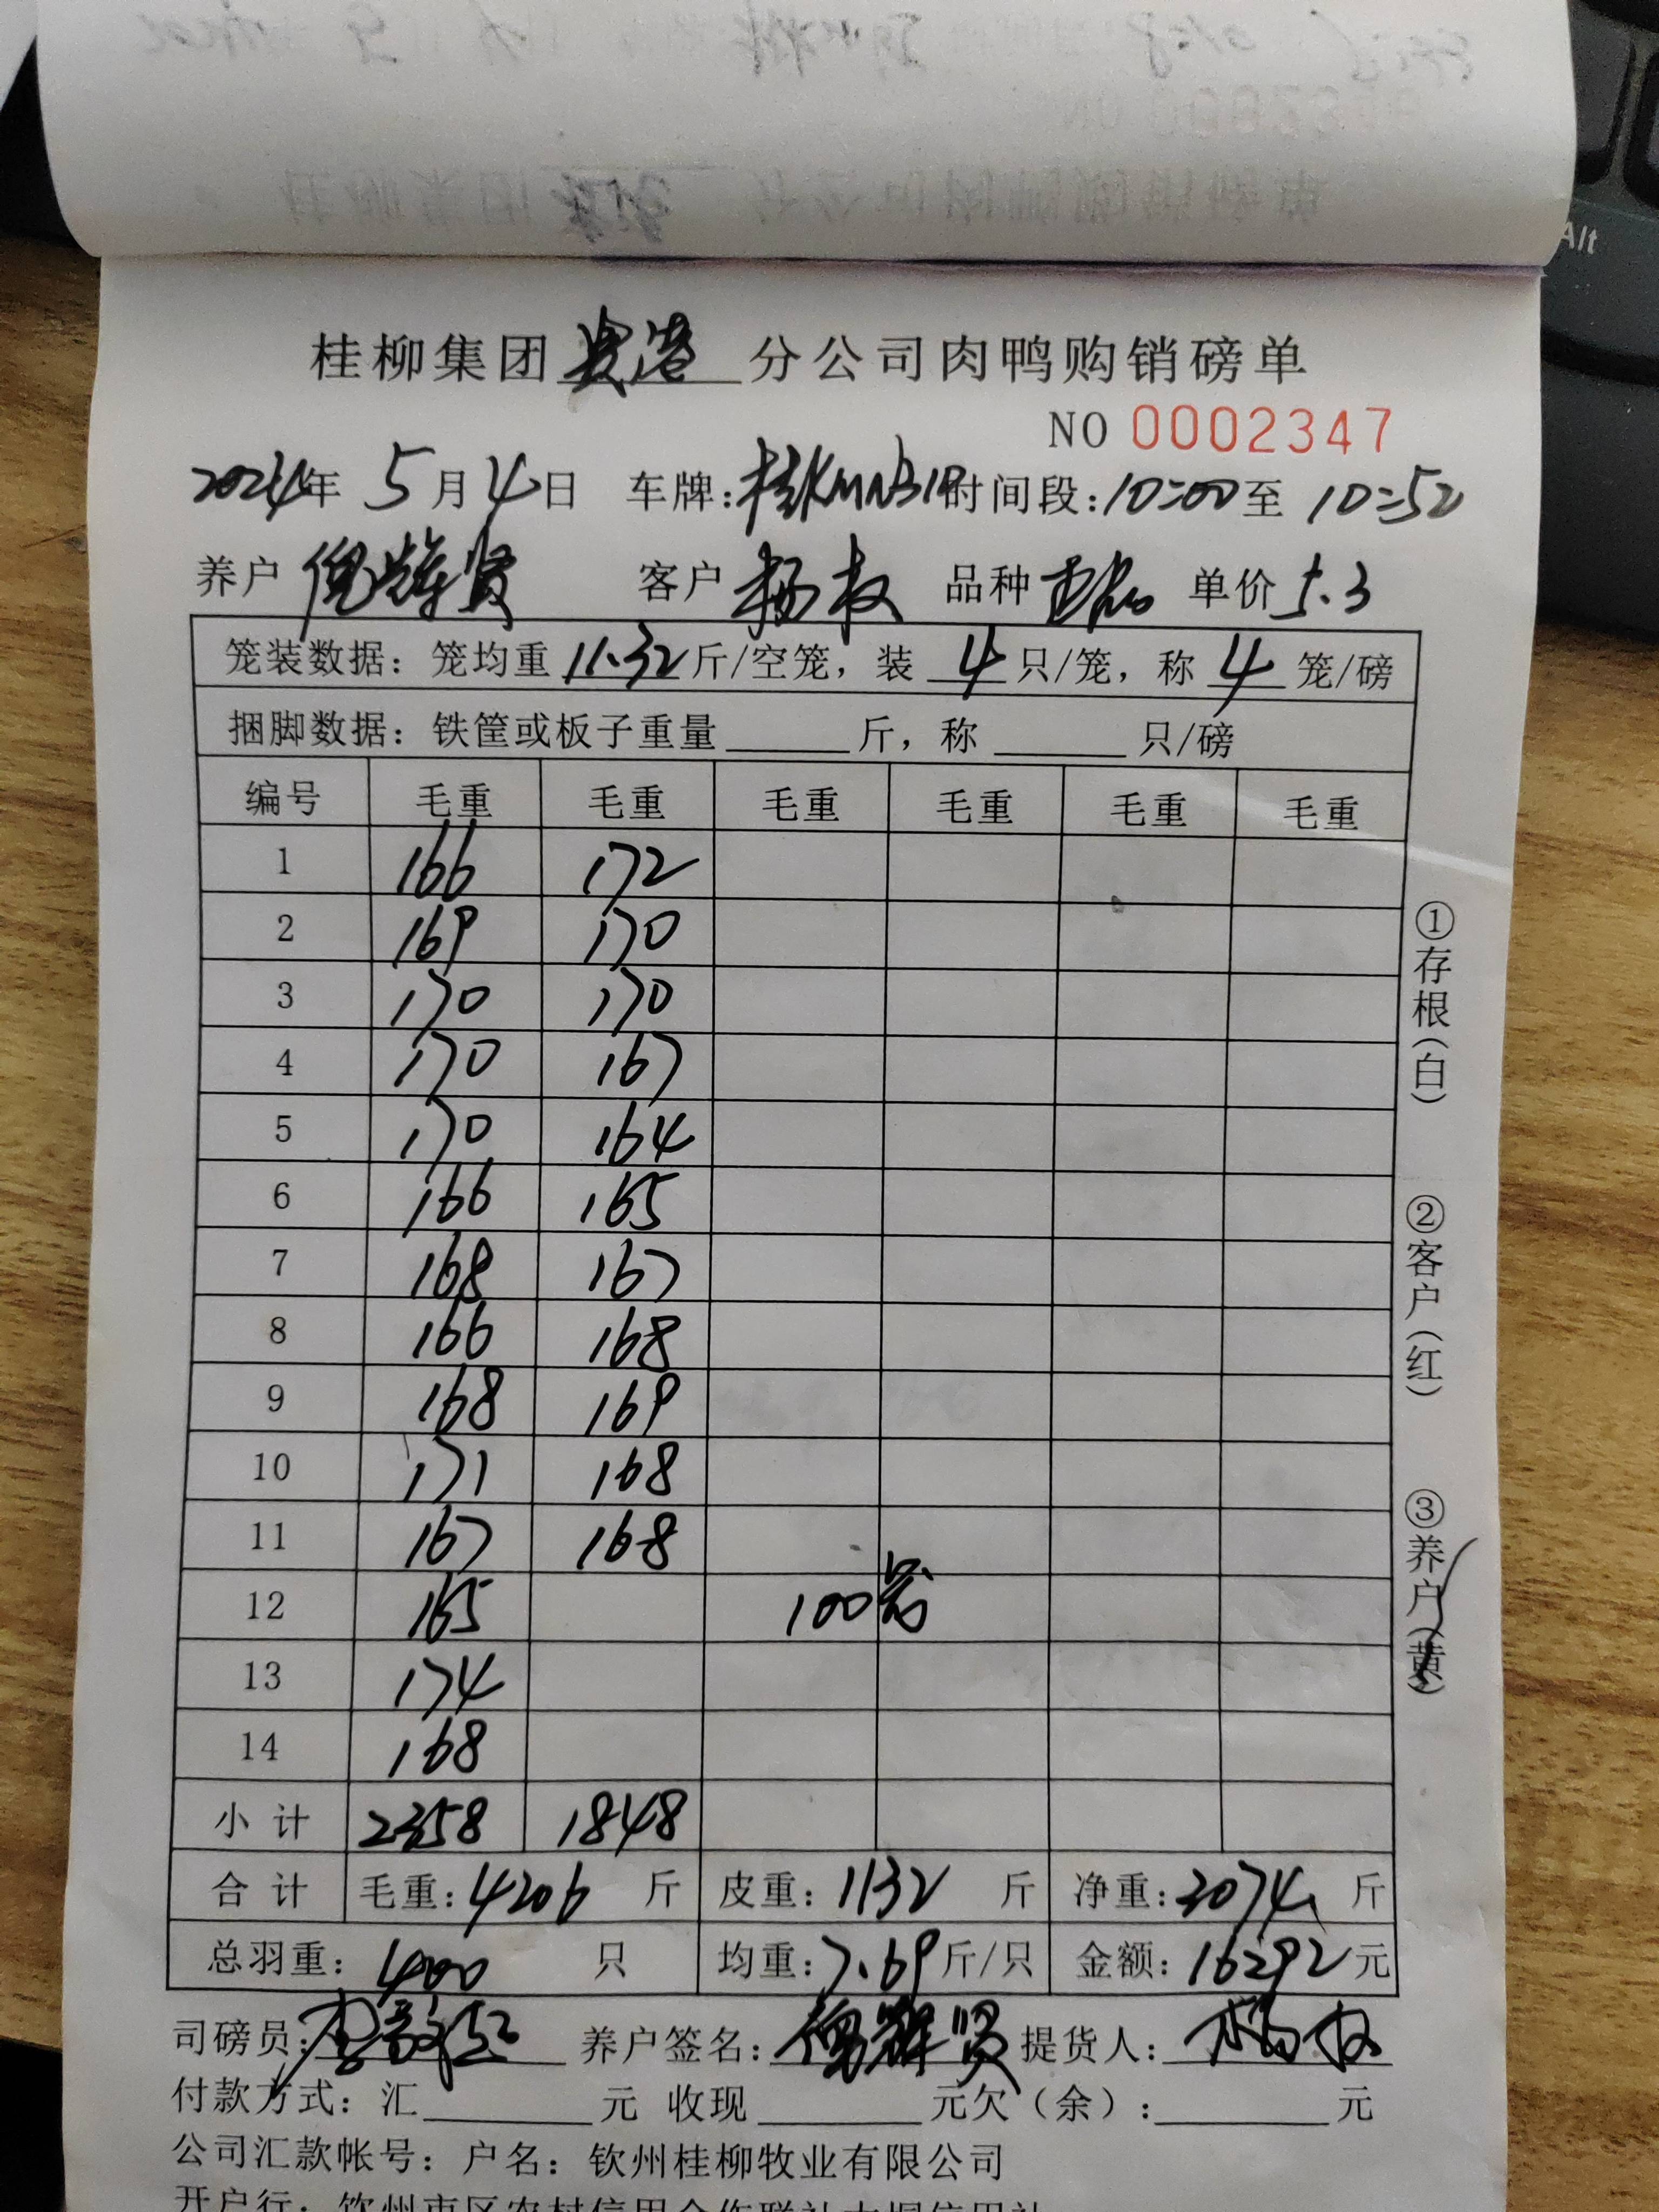 桂柳集团贵港分公司肉鸭购销磅单
NO 0002347
2024年 5月4日 车牌:桂KMN319 时间段:10:00至 10:52
养户 倪辉贤 客户 杨枝 品种 单价 5.3
笼装数据：笼均重 11.32 斤/空笼，装 4 只/笼，称 4 笼/磅
捆脚数据：铁筐或板子重量______斤，称______只/磅
编号 毛重 毛重 毛重 毛重 毛重 毛重
1 166 172
2 169 170
3 170 170
4 170 167
5 170 164
6 166 165
7 168 167
8 166 168
9 168 169
10 171 168
11 167 168
12 165 100笼
13 174
14 168
小计 2358 1848
合计 毛重:4206 斤 皮重:1132 斤 净重:3074 斤
总羽重:400 只 均重:7.69斤/只 金额:16292元
司磅员: 养户签名:倪辉贤 提货人:杨枝
付款方式：汇______元 收现______元欠（余）:______元
公司汇款帐号：户名：钦州桂柳牧业有限公司
①存根(白)
②客户(红)
③养户(黄)
Alt